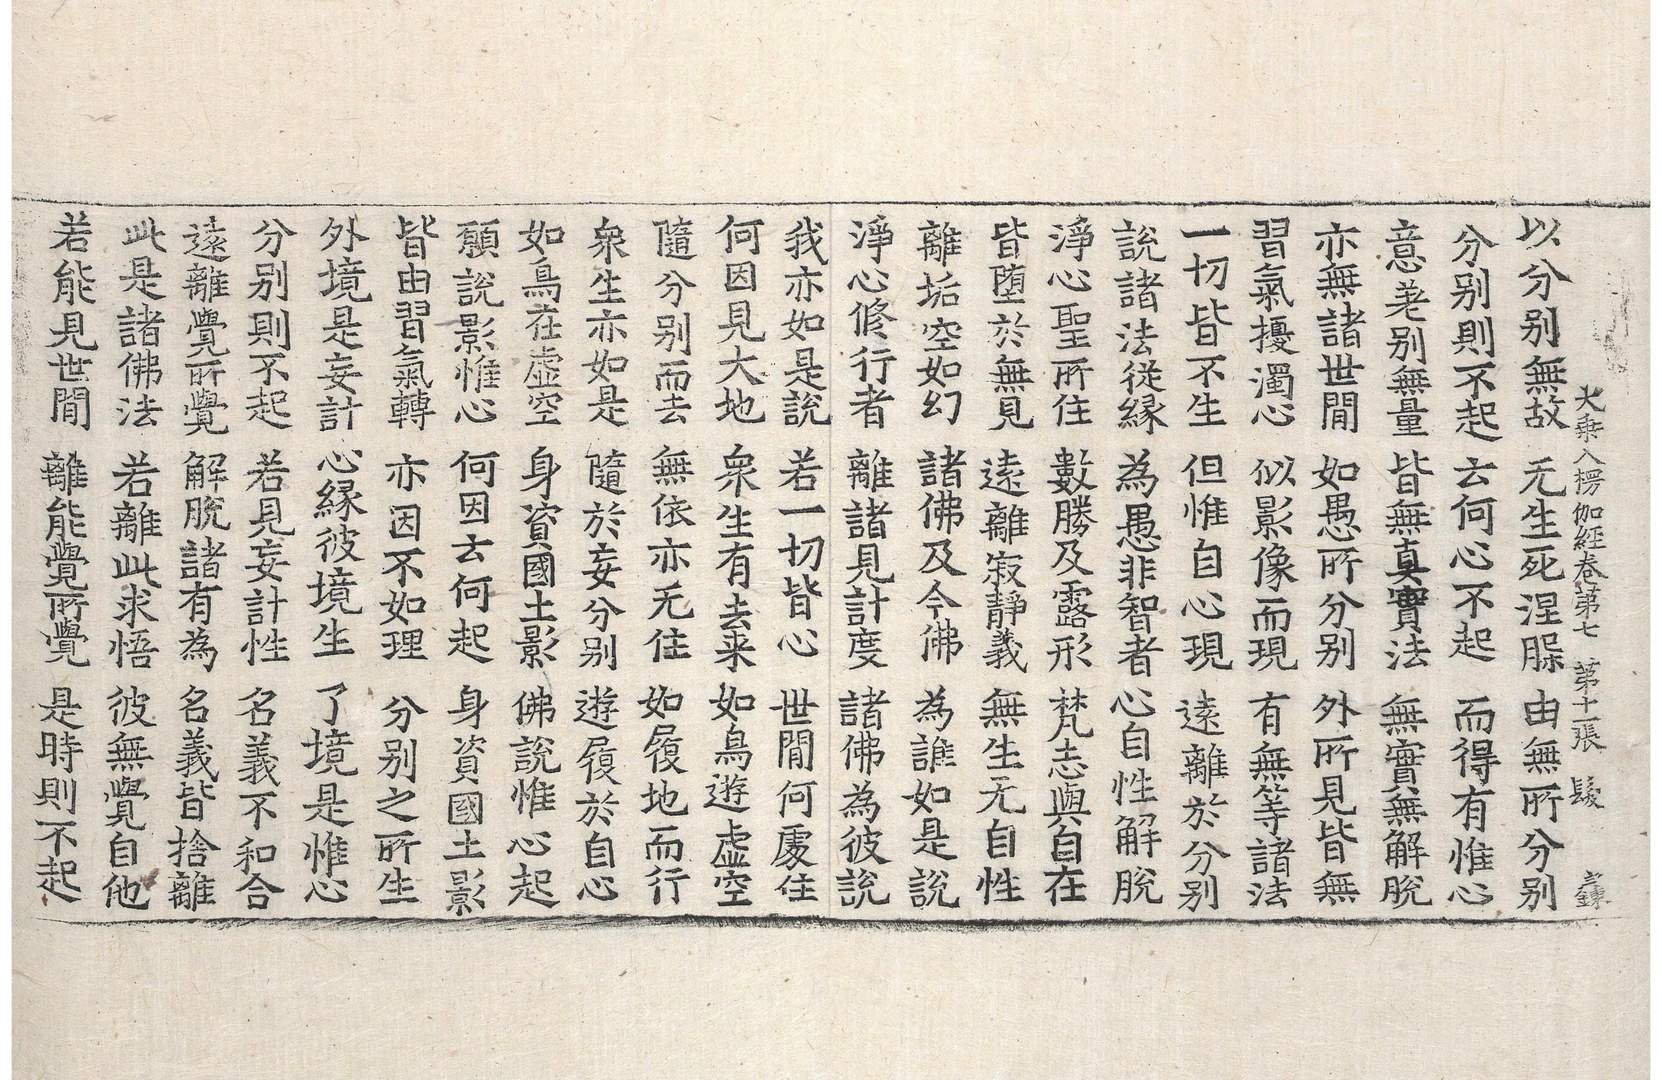 大乘入楞伽經卷第七 第十一張 髮
以分别無故 无生死涅槃 由無所分别
分别則不起 云何心不起 而得有惟心
意差别無量 皆無真實法 無實無解脫
亦無諸世間 如愚所分别 外所見皆無
習氣擾濁心 似影像而現 有無等諸法
一切皆不生 但惟自心現 遠離於分别
說諸法從緣 為愚非智者 心自性解脫
淨心聖所住 數勝及露形 梵志與自在
皆墮於無見 遠離寂靜義 無生无自性
離垢空如幻 諸佛及今佛 為誰如是說
淨心修行者 離諸見計度 諸佛為彼說
我亦如是說 若一切皆心 世間何處住
何因見大地 衆生有去来 如鳥遊虛空
隨分别而去 無依亦无住 如履地而行
衆生亦如是 隨於妄分别 遊履於自心
如鳥在虛空 身資國土影 佛說惟心起
願說影惟心 何因云何起 身資國土影
皆由習氣轉 亦因不如理 分别之所生
外境是妄計 心緣彼境生 了境是惟心
分别則不起 若見妄計性 名義不和合
遠離覺所覺 解脫諸有為 名義皆捨離
此是諸佛法 若離此求悟 彼無覺自他
若能見世間 離能覺所覺 是時則不起